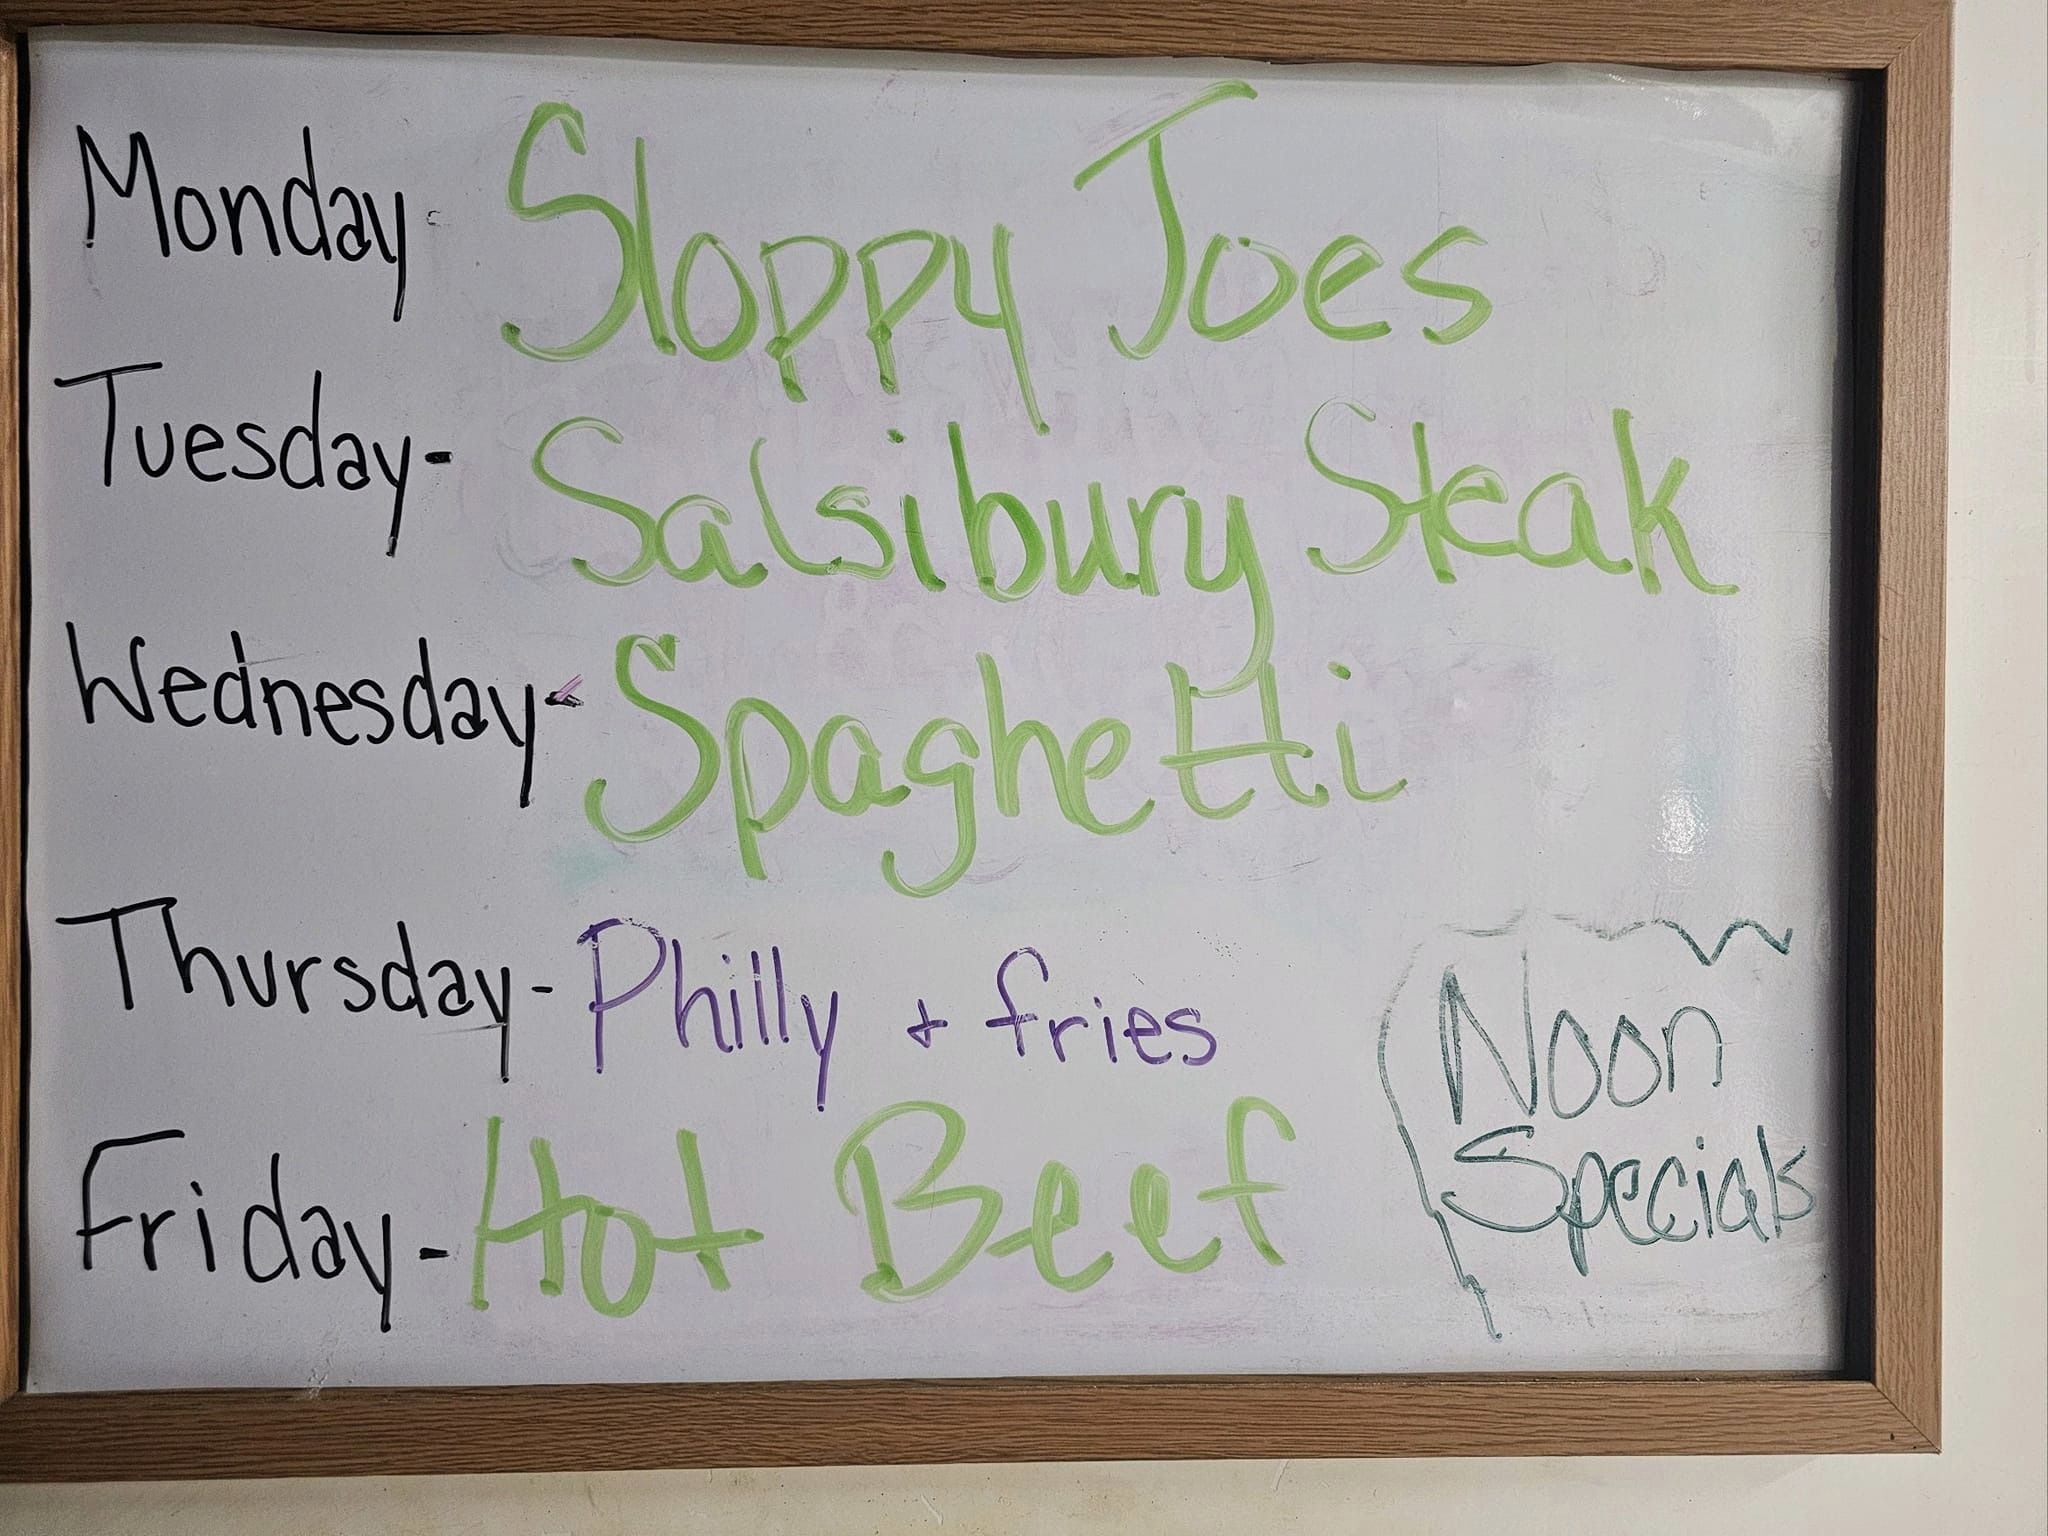 Monday - Sloppy Joes
Tuesday - Salsibury Steak
Wednesday - Spaghetti
Thursday - Philly + fries
Friday - Hot Beef
Noon
Specials